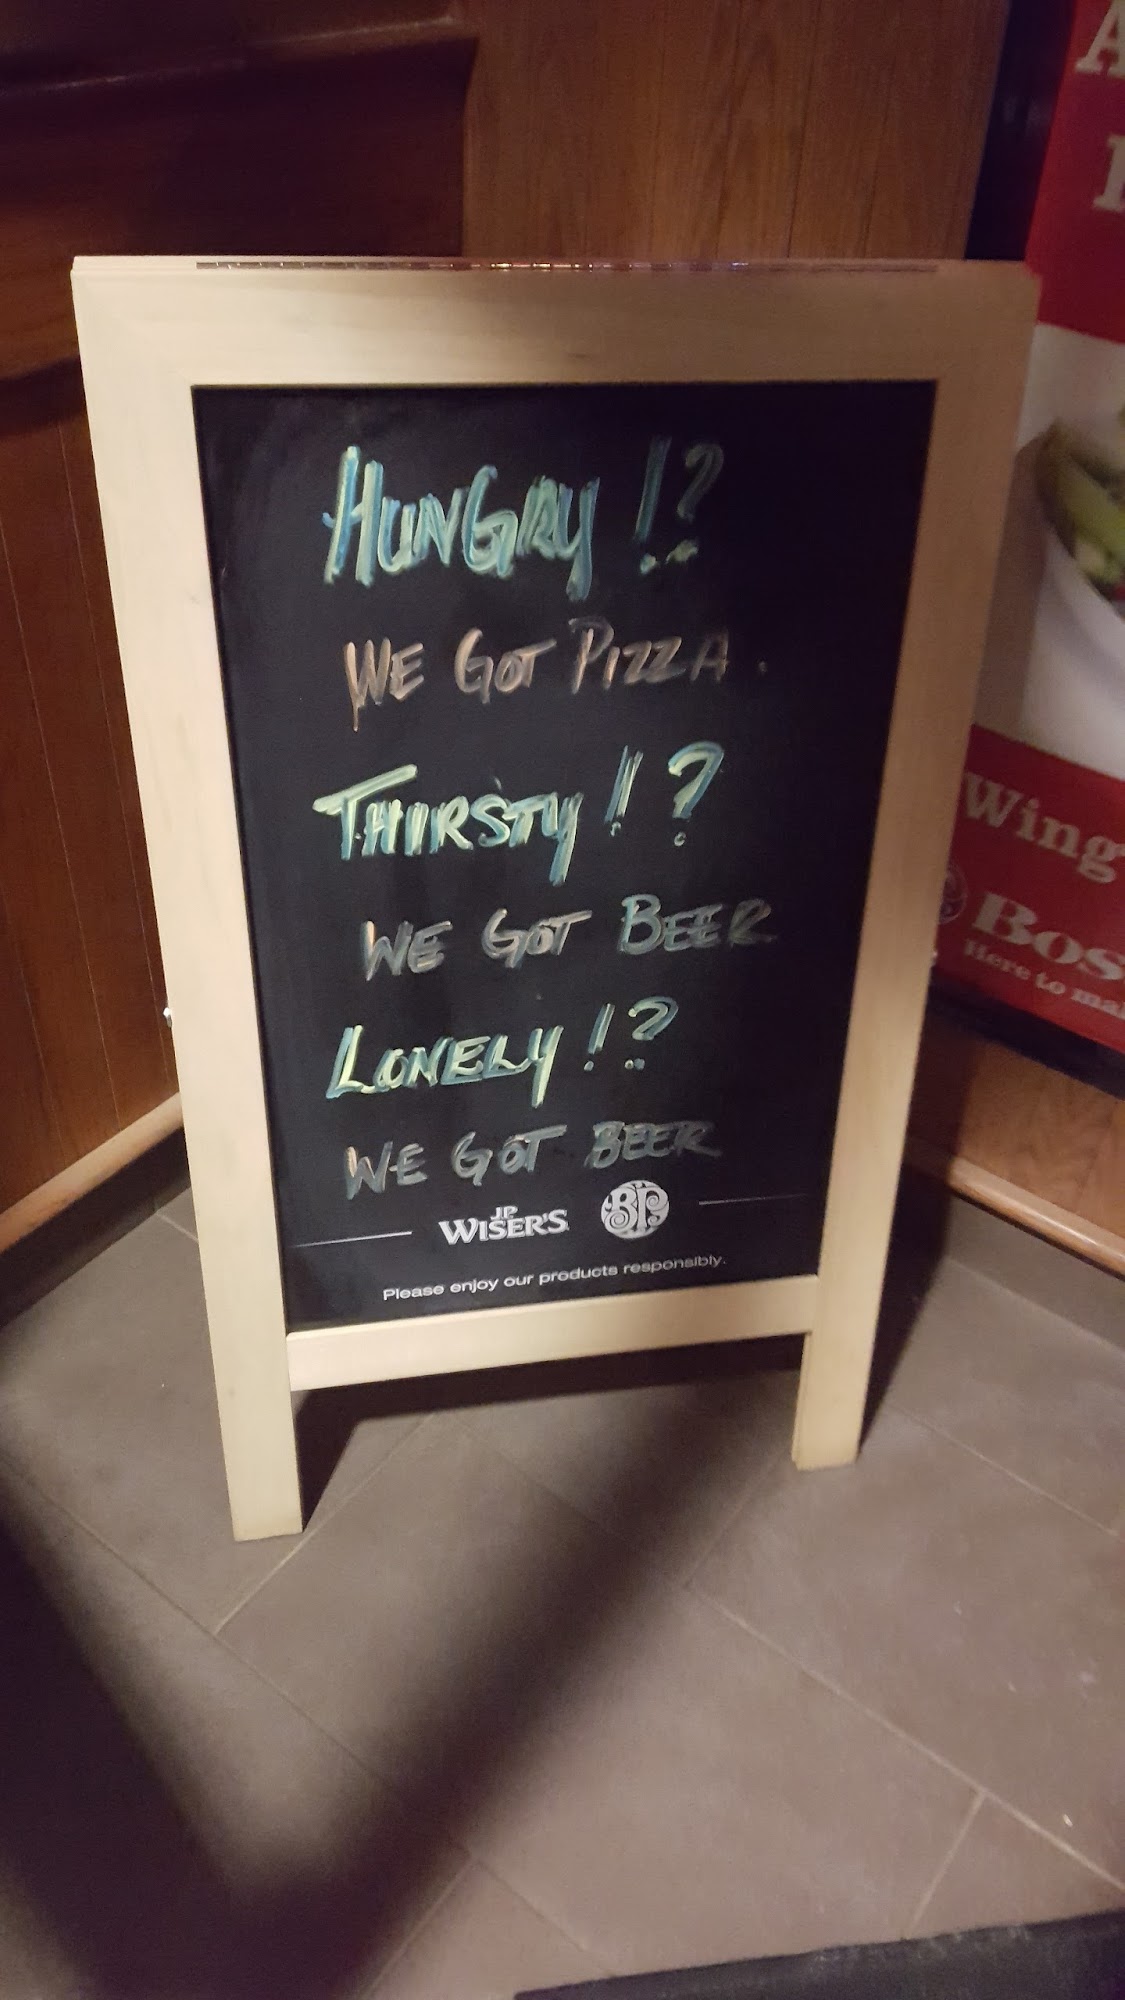 HUNGRY!?
WE GOT PIZZA.
THIRSTY!!?
WE GOT BEER
LONELY!?
WE GOT BEER
J.P. WISER'S BP
Please enjoy our products responsibly.
A
Wing
Bos
Here to ma